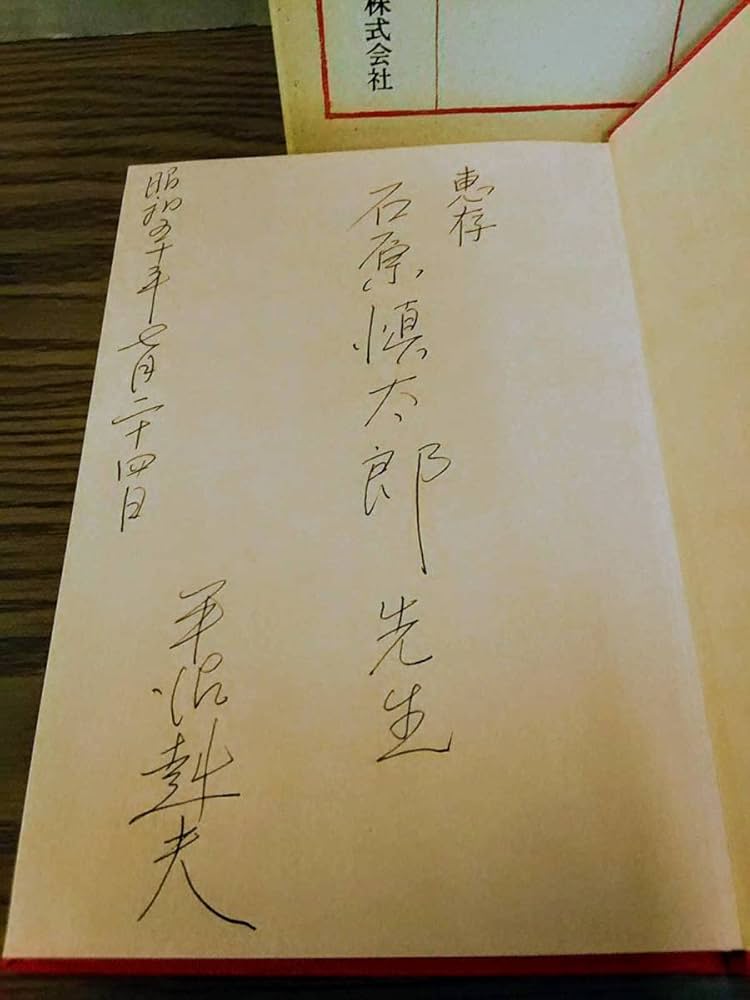 株式会社
恵存
石原慎太郎先生
平沼赳夫
昭和五十年七月二十四日